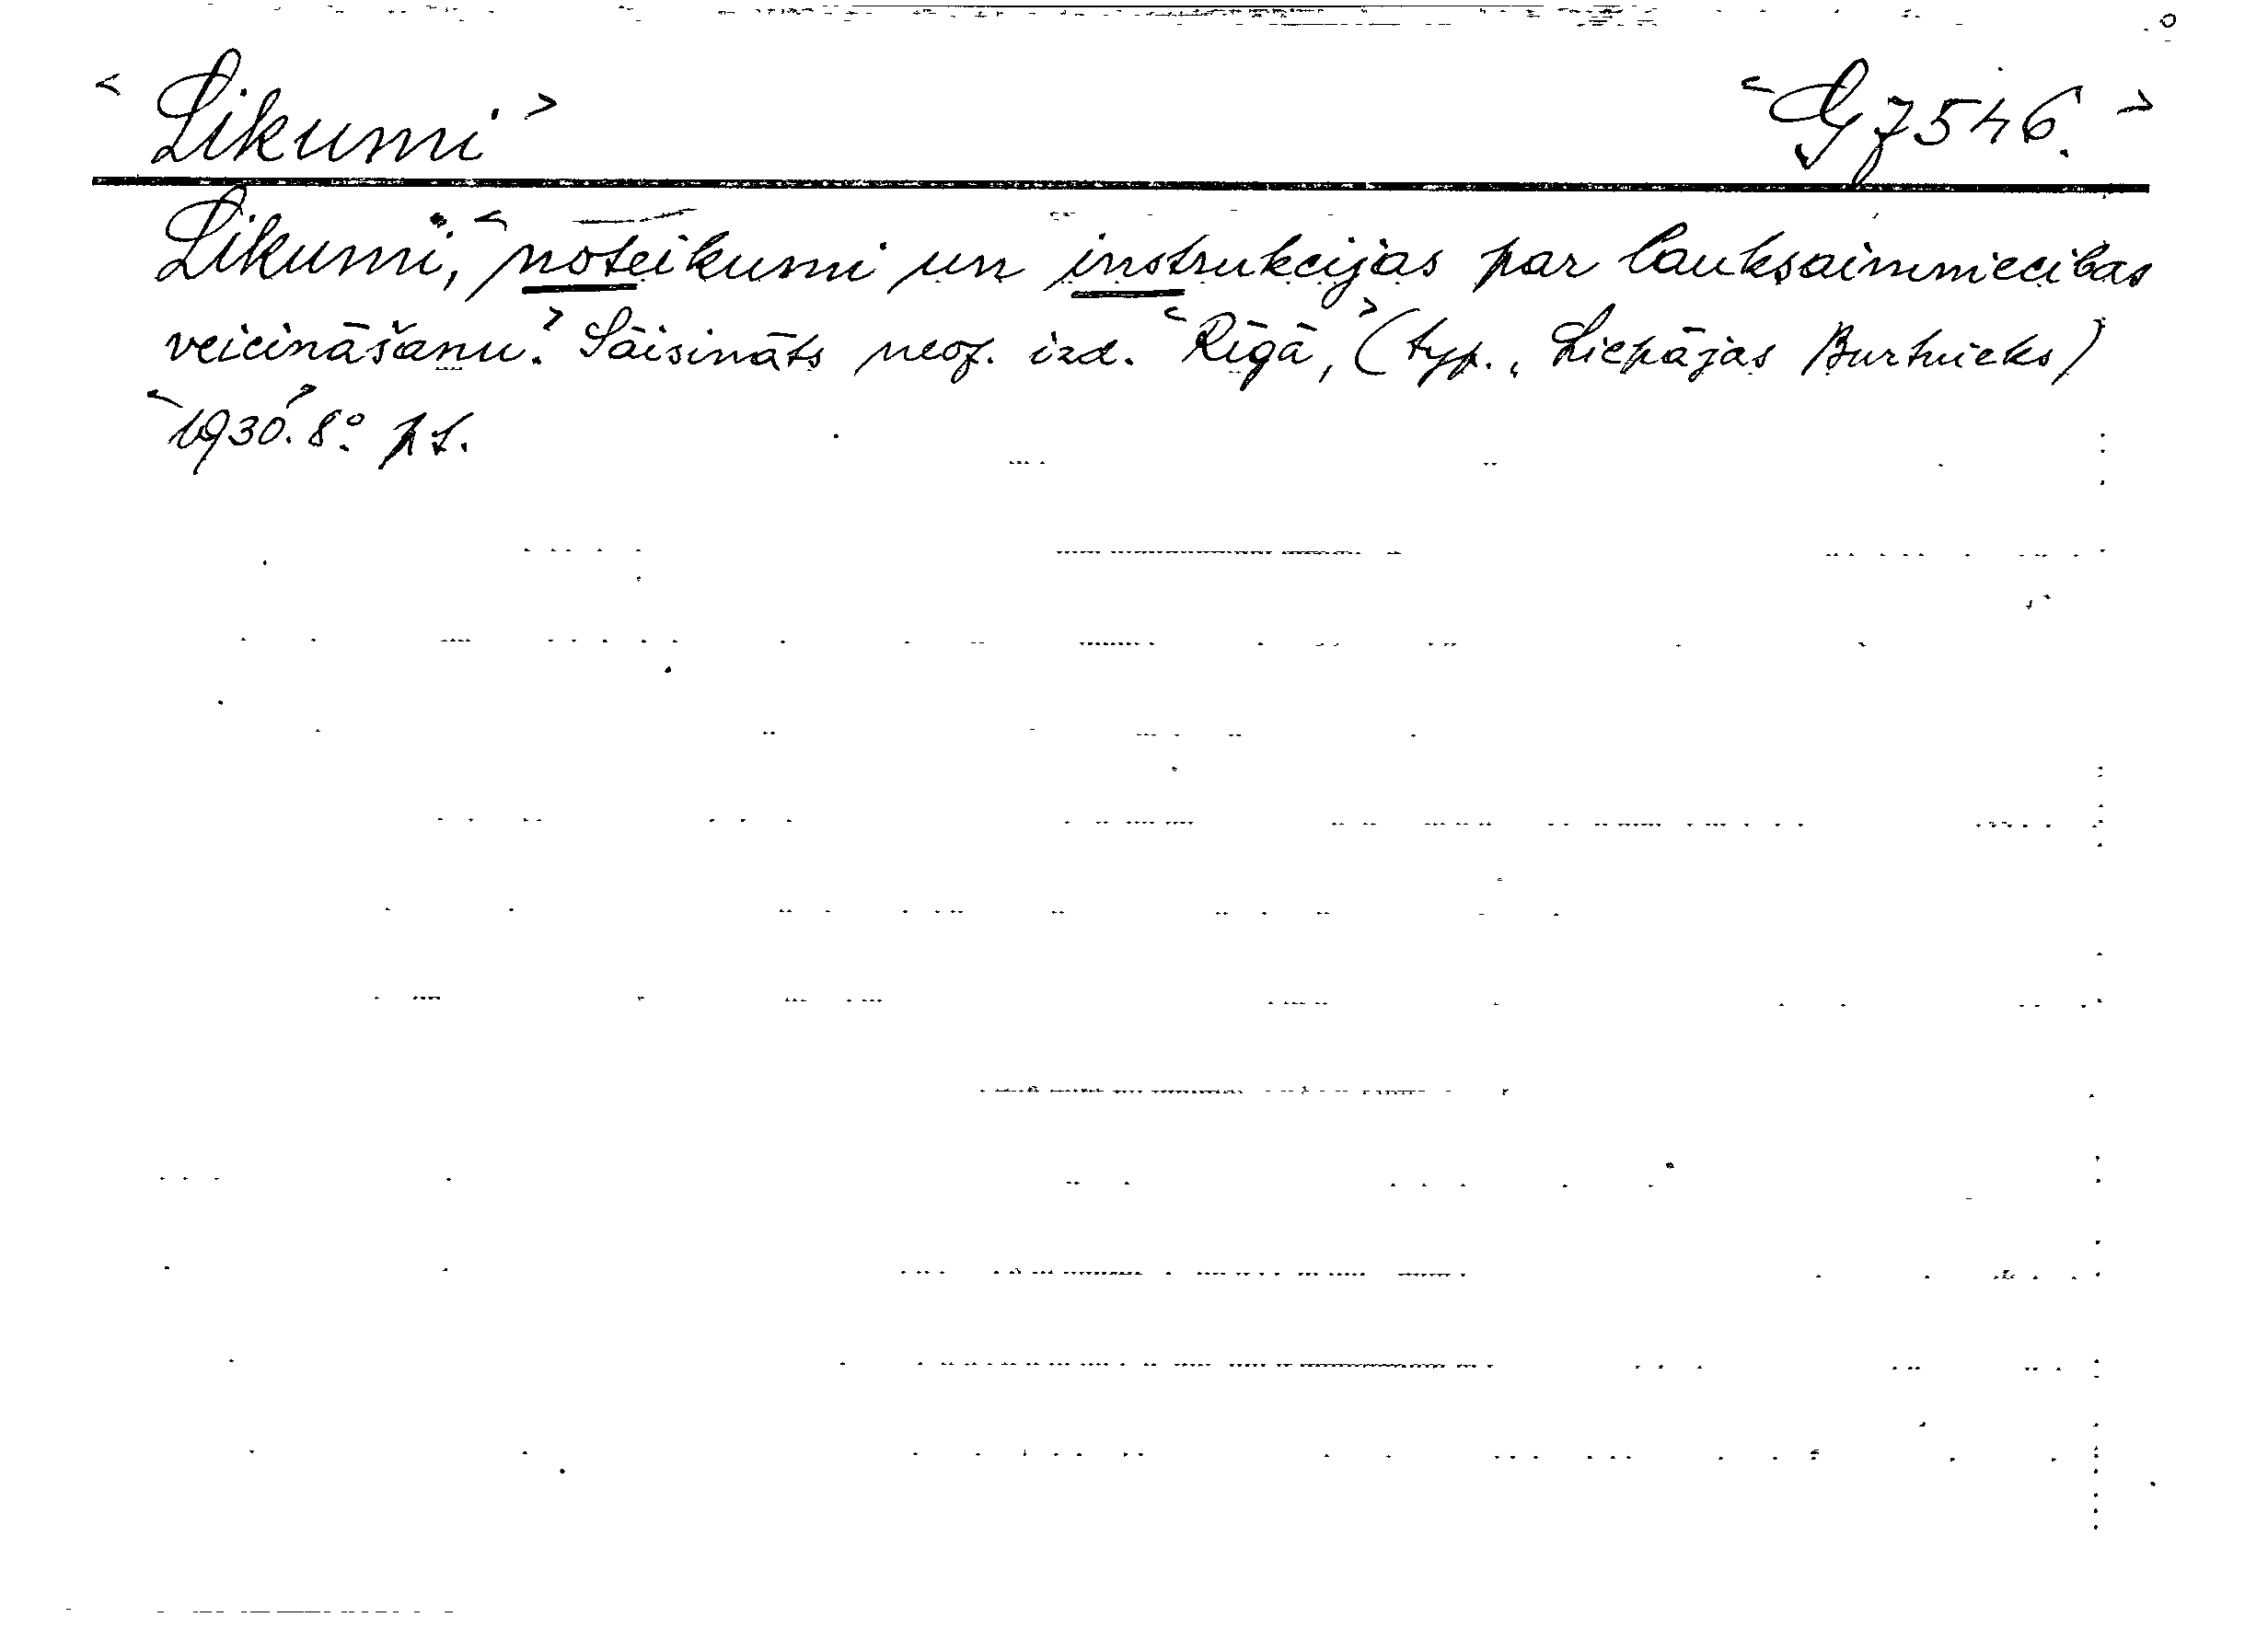 <Likumi> <G 7546.>
Likumi, <noteikumi un instrukcijas par lauksaimniecibas
veicināšanu.> Sāisināts neof. izd. <Rīgā,> (typ. „Liepājas Burtnieks)
<1930.> 8°.